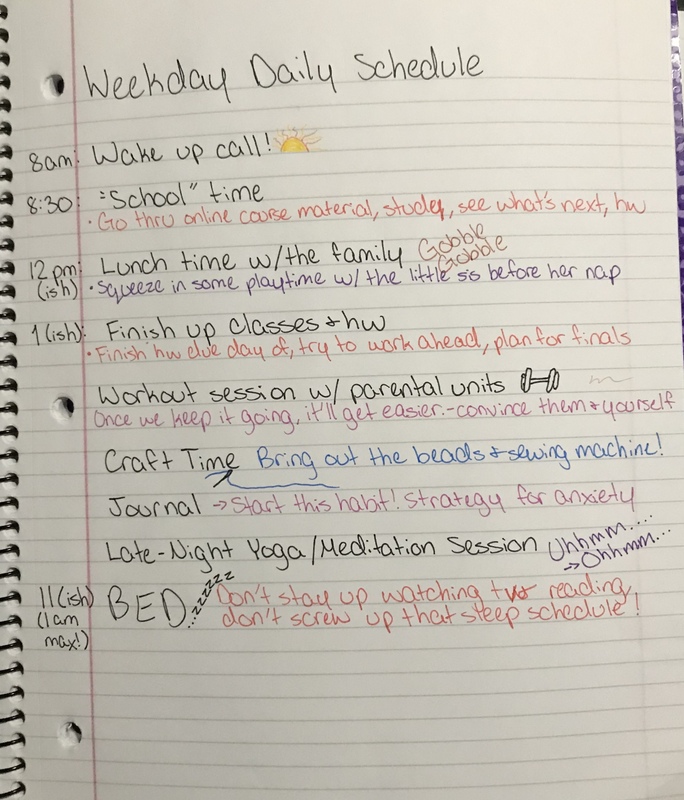 Weekday Daily Schedule
8am: Wake up call!
8:30: "School" time
• Go thru online course material, study, see what's next, hw
12pm (ish): Lunch time w/the family Gobble Gobble
• Squeeze in some playtime w/ the little sis before her nap
1(ish): Finish up classes + hw
• Finish hw due day of, try to work ahead, plan for finals
Workout session w/ parental units
Once we keep it going, it'll get easier - convince them + yourself
Craft Time Bring out the beads + sewing machine!
Journal → Start this habit! Strategy for anxiety
Late-Night Yoga/Meditation Session Uhhmm....
→ Ohhmm...
11(ish) (1am max!) BED ...zzzzzz Don't stay up watching tv or reading,
don't screw up that sleep schedule!